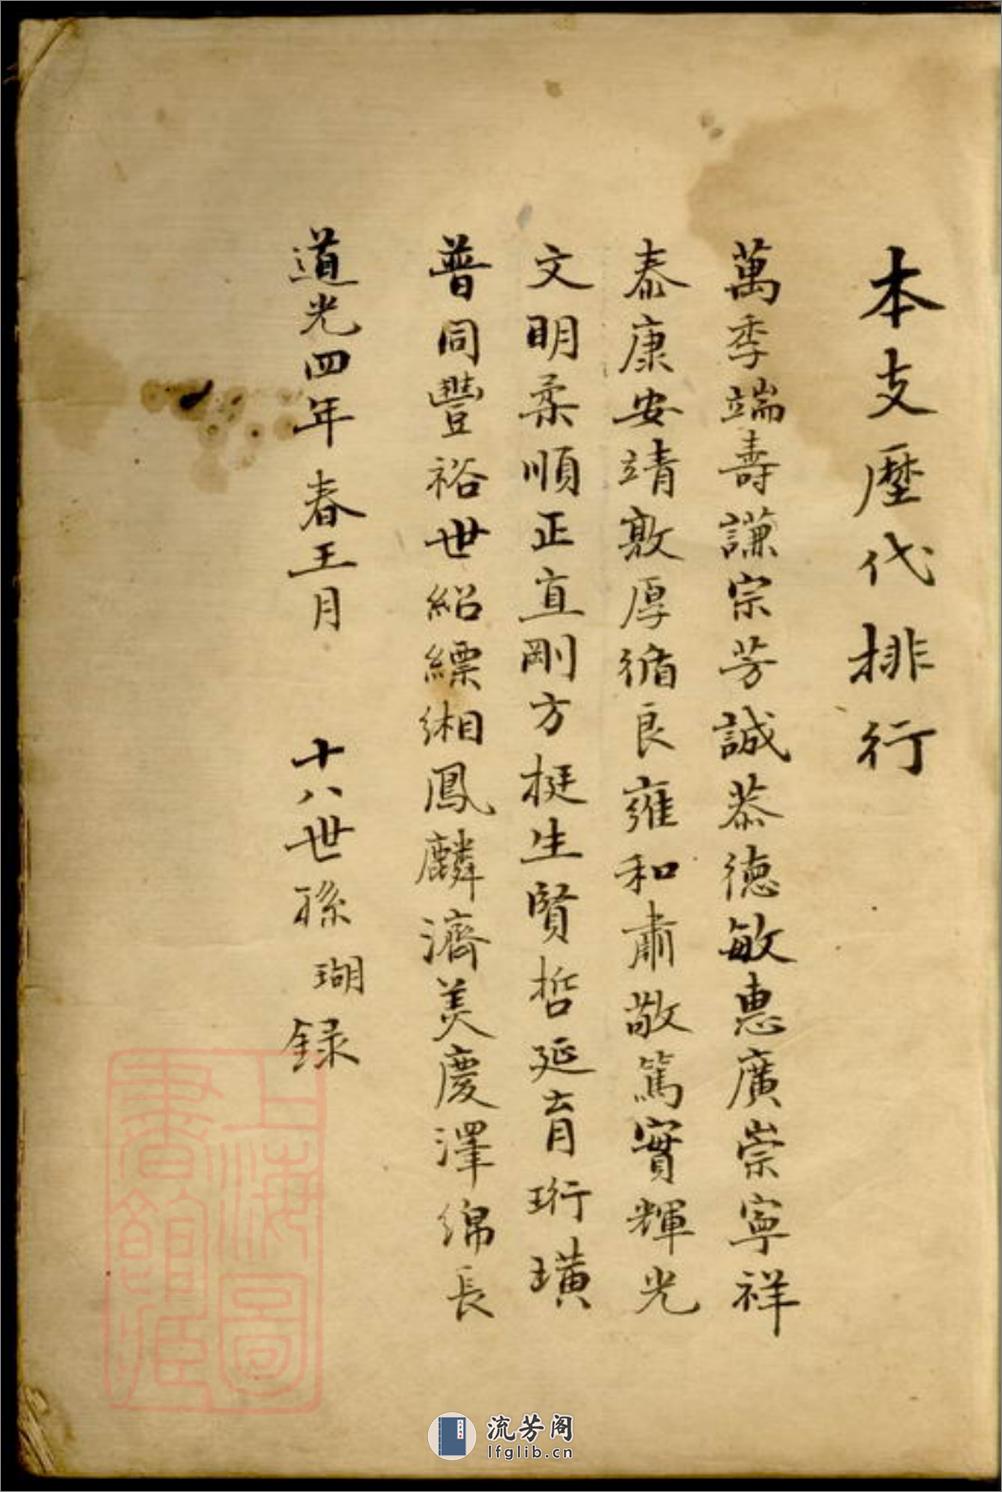 本支歴代排行
萬季端壽謙宗芳誠恭德敏惠廣崇寧祥
泰康安靖敦厚循良雍和肅敬篤實輝光
文明柔順正直剛方挺生賢哲延育珩璜
普同豐裕世紹縹緗鳳麟濟美慶澤綿長
道光四年春王月 十八世孫瑚録
上海圖
書館藏
流芳阁
lfglib.cn